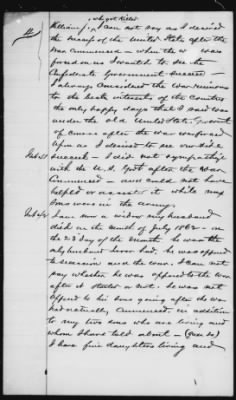 who got killed
William J., I can not say as I desired
the success of the United States after the
war commenced - when the w was
forced on us I wanted to see the
Confederate Government succeed -
I always considered the war ruinous
to the best interests of the Country
the only happy days that I said was
under the old United States Govmt
of course after the war was forced
upon us I desired to see our side
succeed - I did not sympathize
with the U.S. Govt after the war
commenced - and could not have
helped or assisted it while my
sons were in the army.
I am now a widow my husband
died in the month of July 1862 - on
the 23d day of the month he was the
only husband I ever had, he was opposed
to secession and the war. I can not
say whether he was opposed to the war
after it started or not. he was not
opposed to his sons going after the war
had actually commenced, in addition
to my two sons who are living and
whom I have told about -
I have five daughters living and